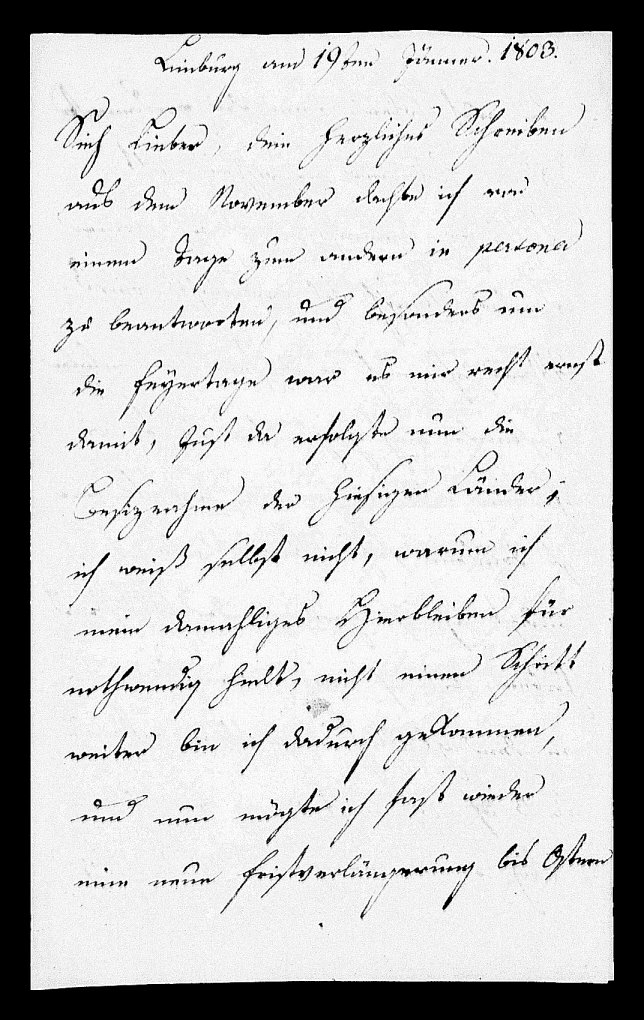 Limburg am 19ten Jänner. 1803.
Lieber, dein herzliches Schreiben
aus dem November dachte ich von
einem Tage zum andern in persona
zu beantworten, und besonders um
die Feyertage war es mir recht ernst
damit, Just da erfolgte nun die
Besiznahme der hiesigen Länder;
ich weiß selbst nicht, warum ich
mein damahliges Hierbleiben für
nothwendig hielt, nicht einen Schritt
weiter bin ich dadurch gekommen,
und nun mögte ich fast wieder
eine neue Fristverlängerung bis Ostern